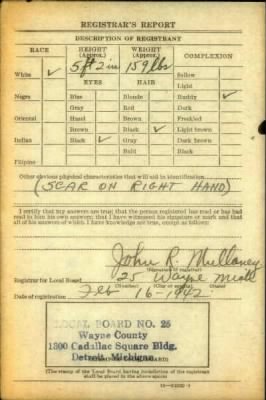 REGISTRAR'S REPORT
DESCRIPTION OF REGISTRANT
RACE HEIGHT (Approx.) WEIGHT (Approx.) COMPLEXION
5 ft 2 in 159 lbs
White ✓ EYES HAIR Sallow
Light
Negro Blue Blonde Ruddy ✓
Gray Red Dark
Oriental Hazel Brown Freckled
Brown Black ✓ Light brown
Indian Black ✓ Gray Dark brown
Bald Black
Filipino
Other obvious physical characteristics that will aid in identification
(SCAR ON RIGHT HAND)
I certify that my answers are true; that the person registered has read or has had
read to him his own answers; that I have witnessed his signature or mark and that
all of his answers of which I have knowledge are true, except as follows:
John R. Mullaney
(Signature of registrar)
Registrar for Local Board 25 Wayne Mich
(Number) (City or county) (State)
Date of registration Feb 16-1942
LOCAL BOARD NO. 25
Wayne County
1300 Cadillac Square Bldg.
Detroit, Michigan
(The stamp of the Local Board having jurisdiction of the registrant
shall be placed in the above space)